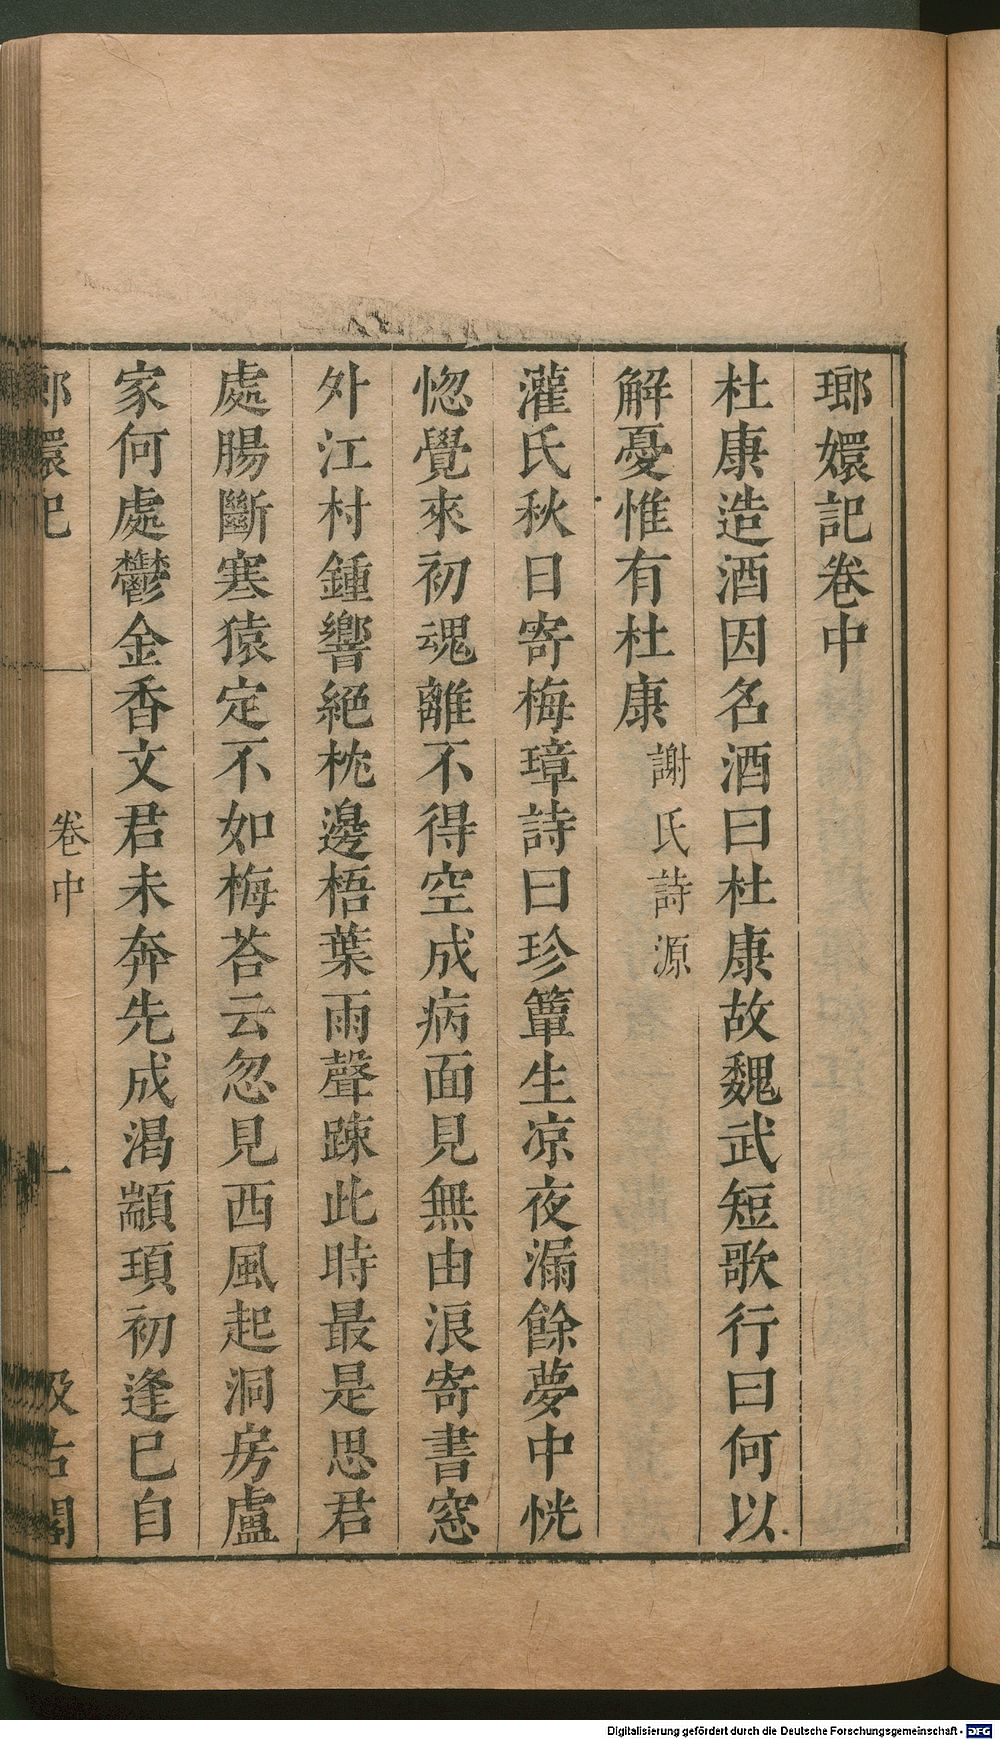 瑯嬛記卷中
杜康造酒因名酒曰杜康故魏武短歌行曰何以
解憂惟有杜康 謝氏詩源
灌氏秋日寄梅璋詩曰珍簟生凉夜漏餘夢中恍
惚覺來初魂離不得空成病面見無由浪寄書窓
外江村鍾響絕枕邊梧葉雨聲踈此時最是思君
處腸斷寒猿定不如梅荅云忽見西風起洞房盧
家何處鬱金香文君未奔先成渴顓頊初逢已自
瑯嬛記 卷中 一 汲古閣
Digitalisierung gefördert durch die Deutsche Forschungsgemeinschaft - DFG